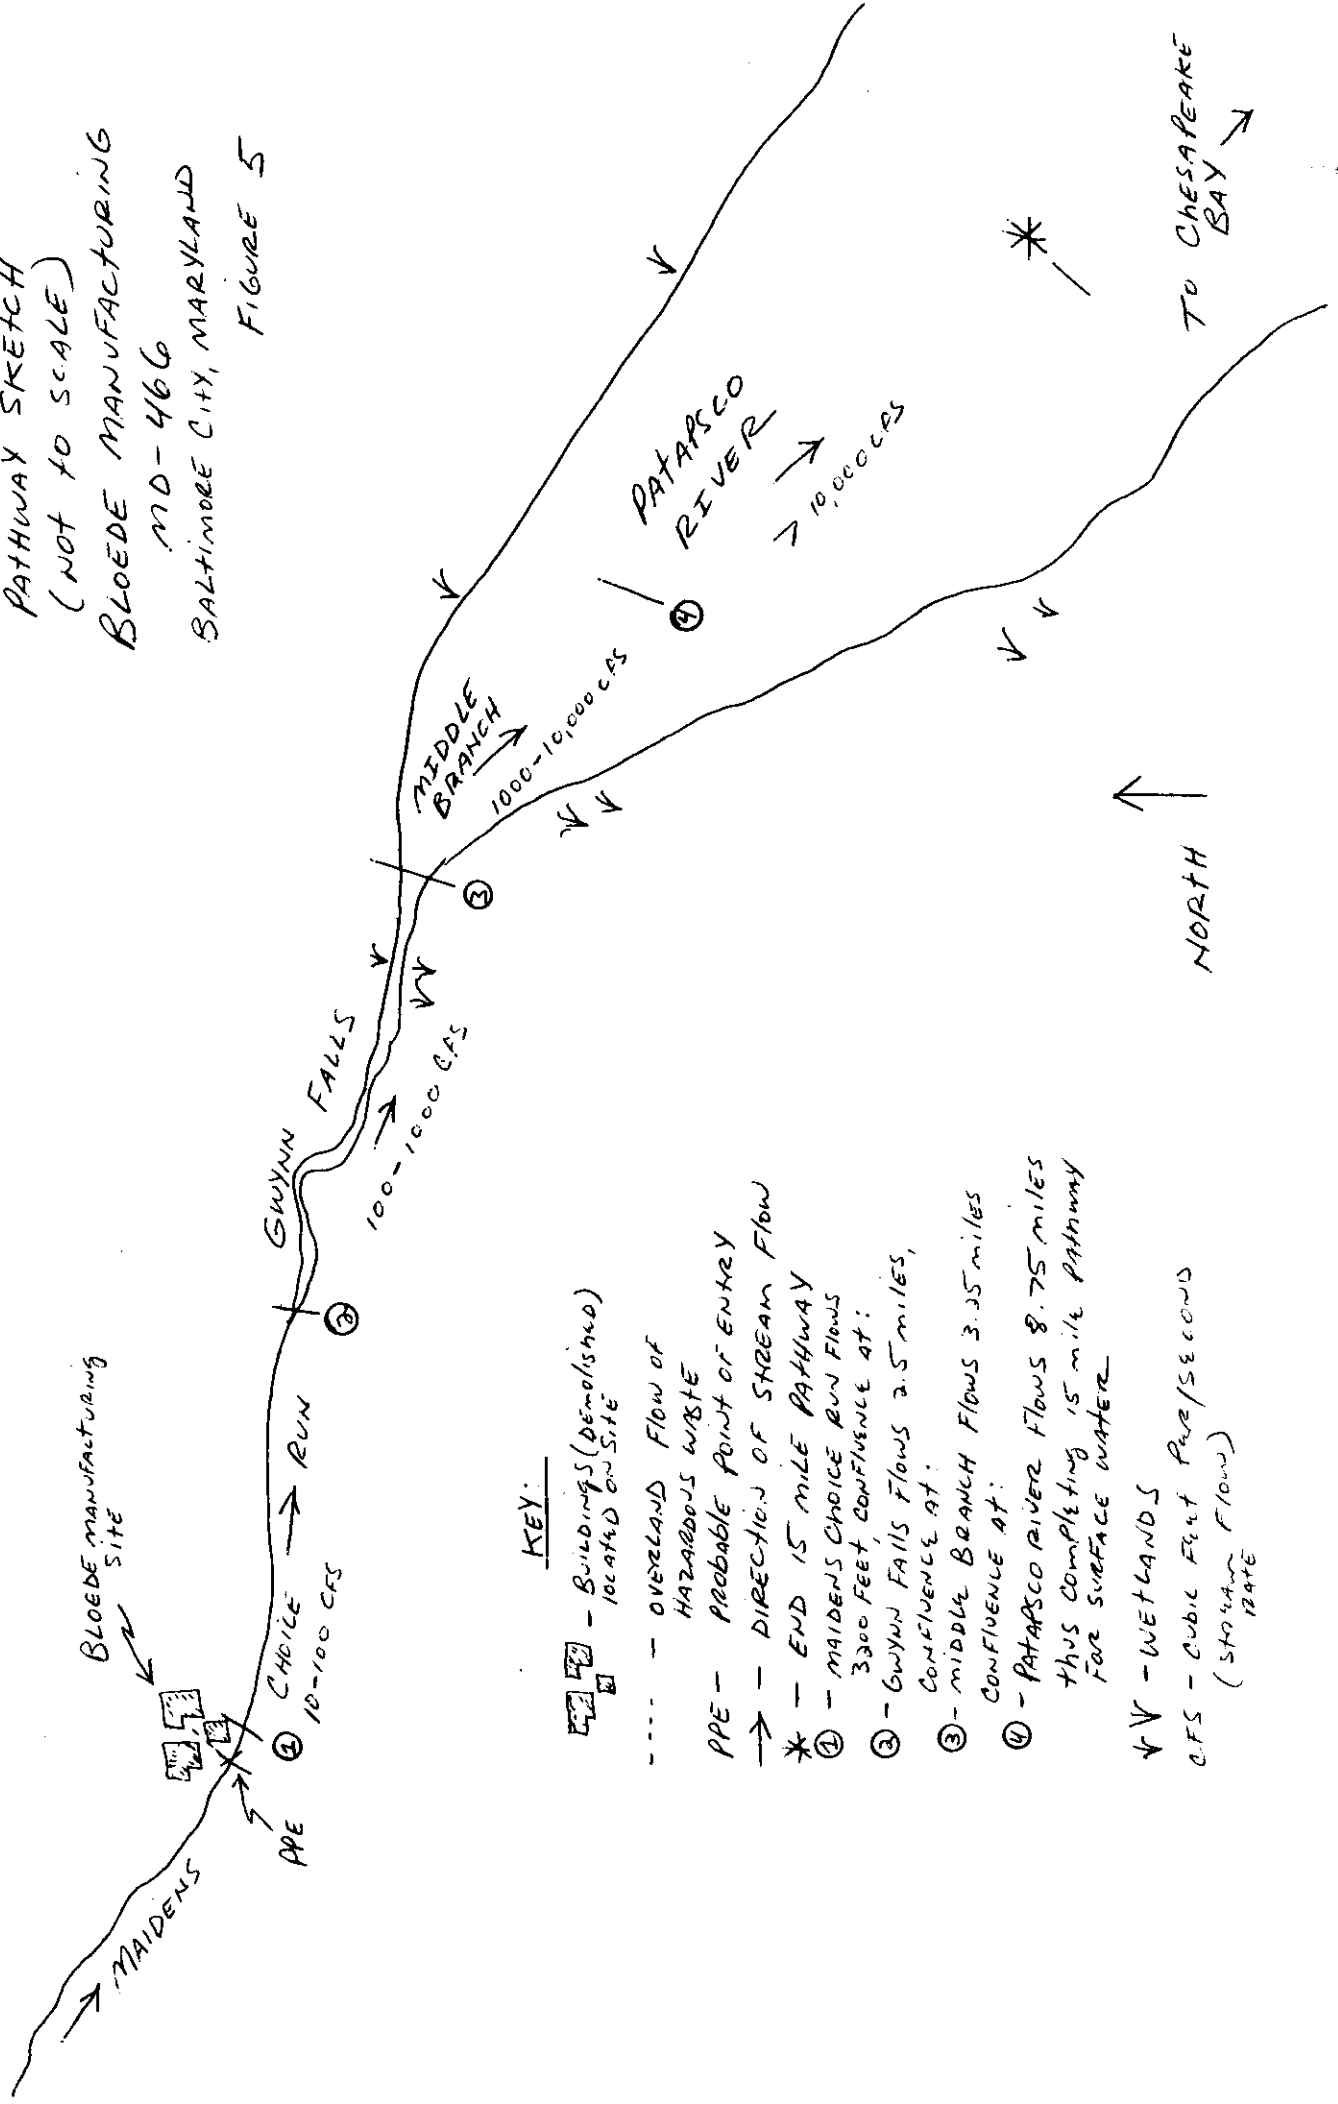 PATHWAY SKETCH
(NOT to SCALE)
BLOEDE MANUFACTURING
MD-466
BALTIMORE CITY, MARYLAND
FIGURE 5
BLOEDE MANUFACTURING
SITE
MAIDENS
CHOICE
RUN
PPE
①
10-100 CFS
②
GWYNN FALLS
100-1000 CFS
③
MIDDLE
BRANCH
1000-10,000 CFS
④
PATAPSCO
RIVER
> 10,000 CFS
*
TO CHESAPEAKE
BAY
NORTH
KEY:
- BUILDINGS (DEMOLISHED)
located ON SITE
---- - OVERLAND FLOW OF
HAZARDOUS WASTE
PPE - PROBABLE POINT OF ENTRY
→ - DIRECTION OF STREAM FLOW
* - END 15 MILE PATHWAY
① - MAIDENS CHOICE RUN FLOWS
3200 FEET, CONFLUENCE AT:
② - GWYNN FALLS FLOWS 2.5 MILES,
CONFLUENCE AT:
③ - MIDDLE BRANCH FLOWS 3.25 miles
CONFLUENCE AT:
④ - PATAPSCO RIVER FLOWS 8.75 MILES
thus COMPLETING 15 mile PATHWAY
FOR SURFACE WATER
- WETLANDS
CFS - CUBIC FEET PER/SECOND
(STREAM FLOW)
RATE